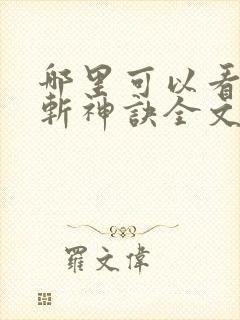 哪里可以看
斬神訣全文
羅文偉